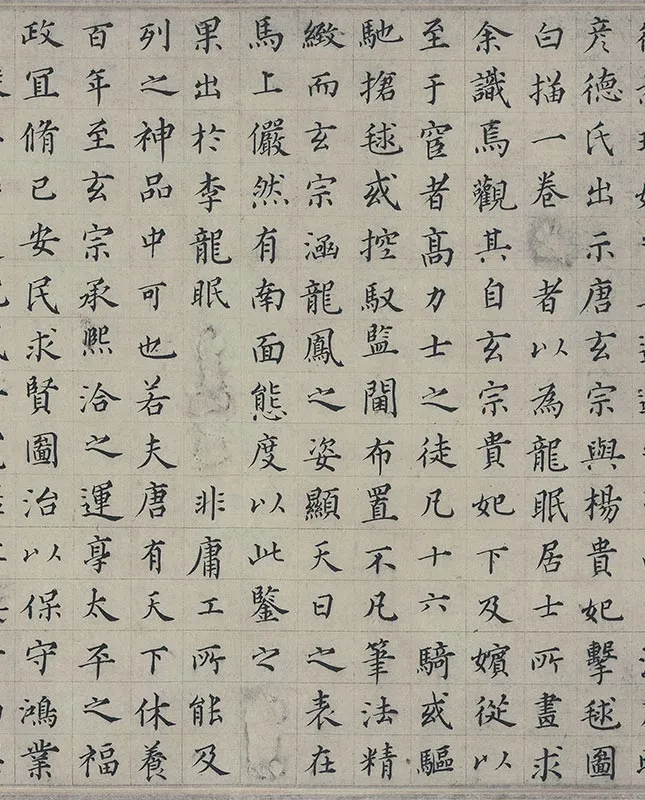 彦德氏出示唐玄宗與楊貴妃擊毬圖
白描一卷 者以為龍眠居士所畫求
余識焉觀其自玄宗貴妃下及嬪從以
至于宦者高力士之徒凡十六騎或驅
馳捃毬或控馭監閫布置不凡筆法精
緻而玄宗涵龍鳳之姿顯天日之表在
馬上儼然有南面態度以此鑒之
果出於李龍眠 非庸工所能及
列之神品中可也若夫唐有天下休養
百年至玄宗承熙洽之運享太平之福
政冝脩己安民求賢圖治以保守鴻業